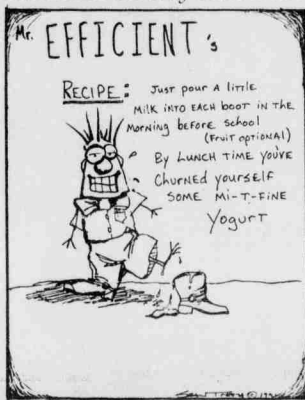 Mr. EFFICIENT's
RECIPE: Just pour A little
Milk into EACH boot in the
Morning before school
(Fruit optional)
By Lunch time you've
Churned yourself
SOME Mi-T-Fine
Yogurt